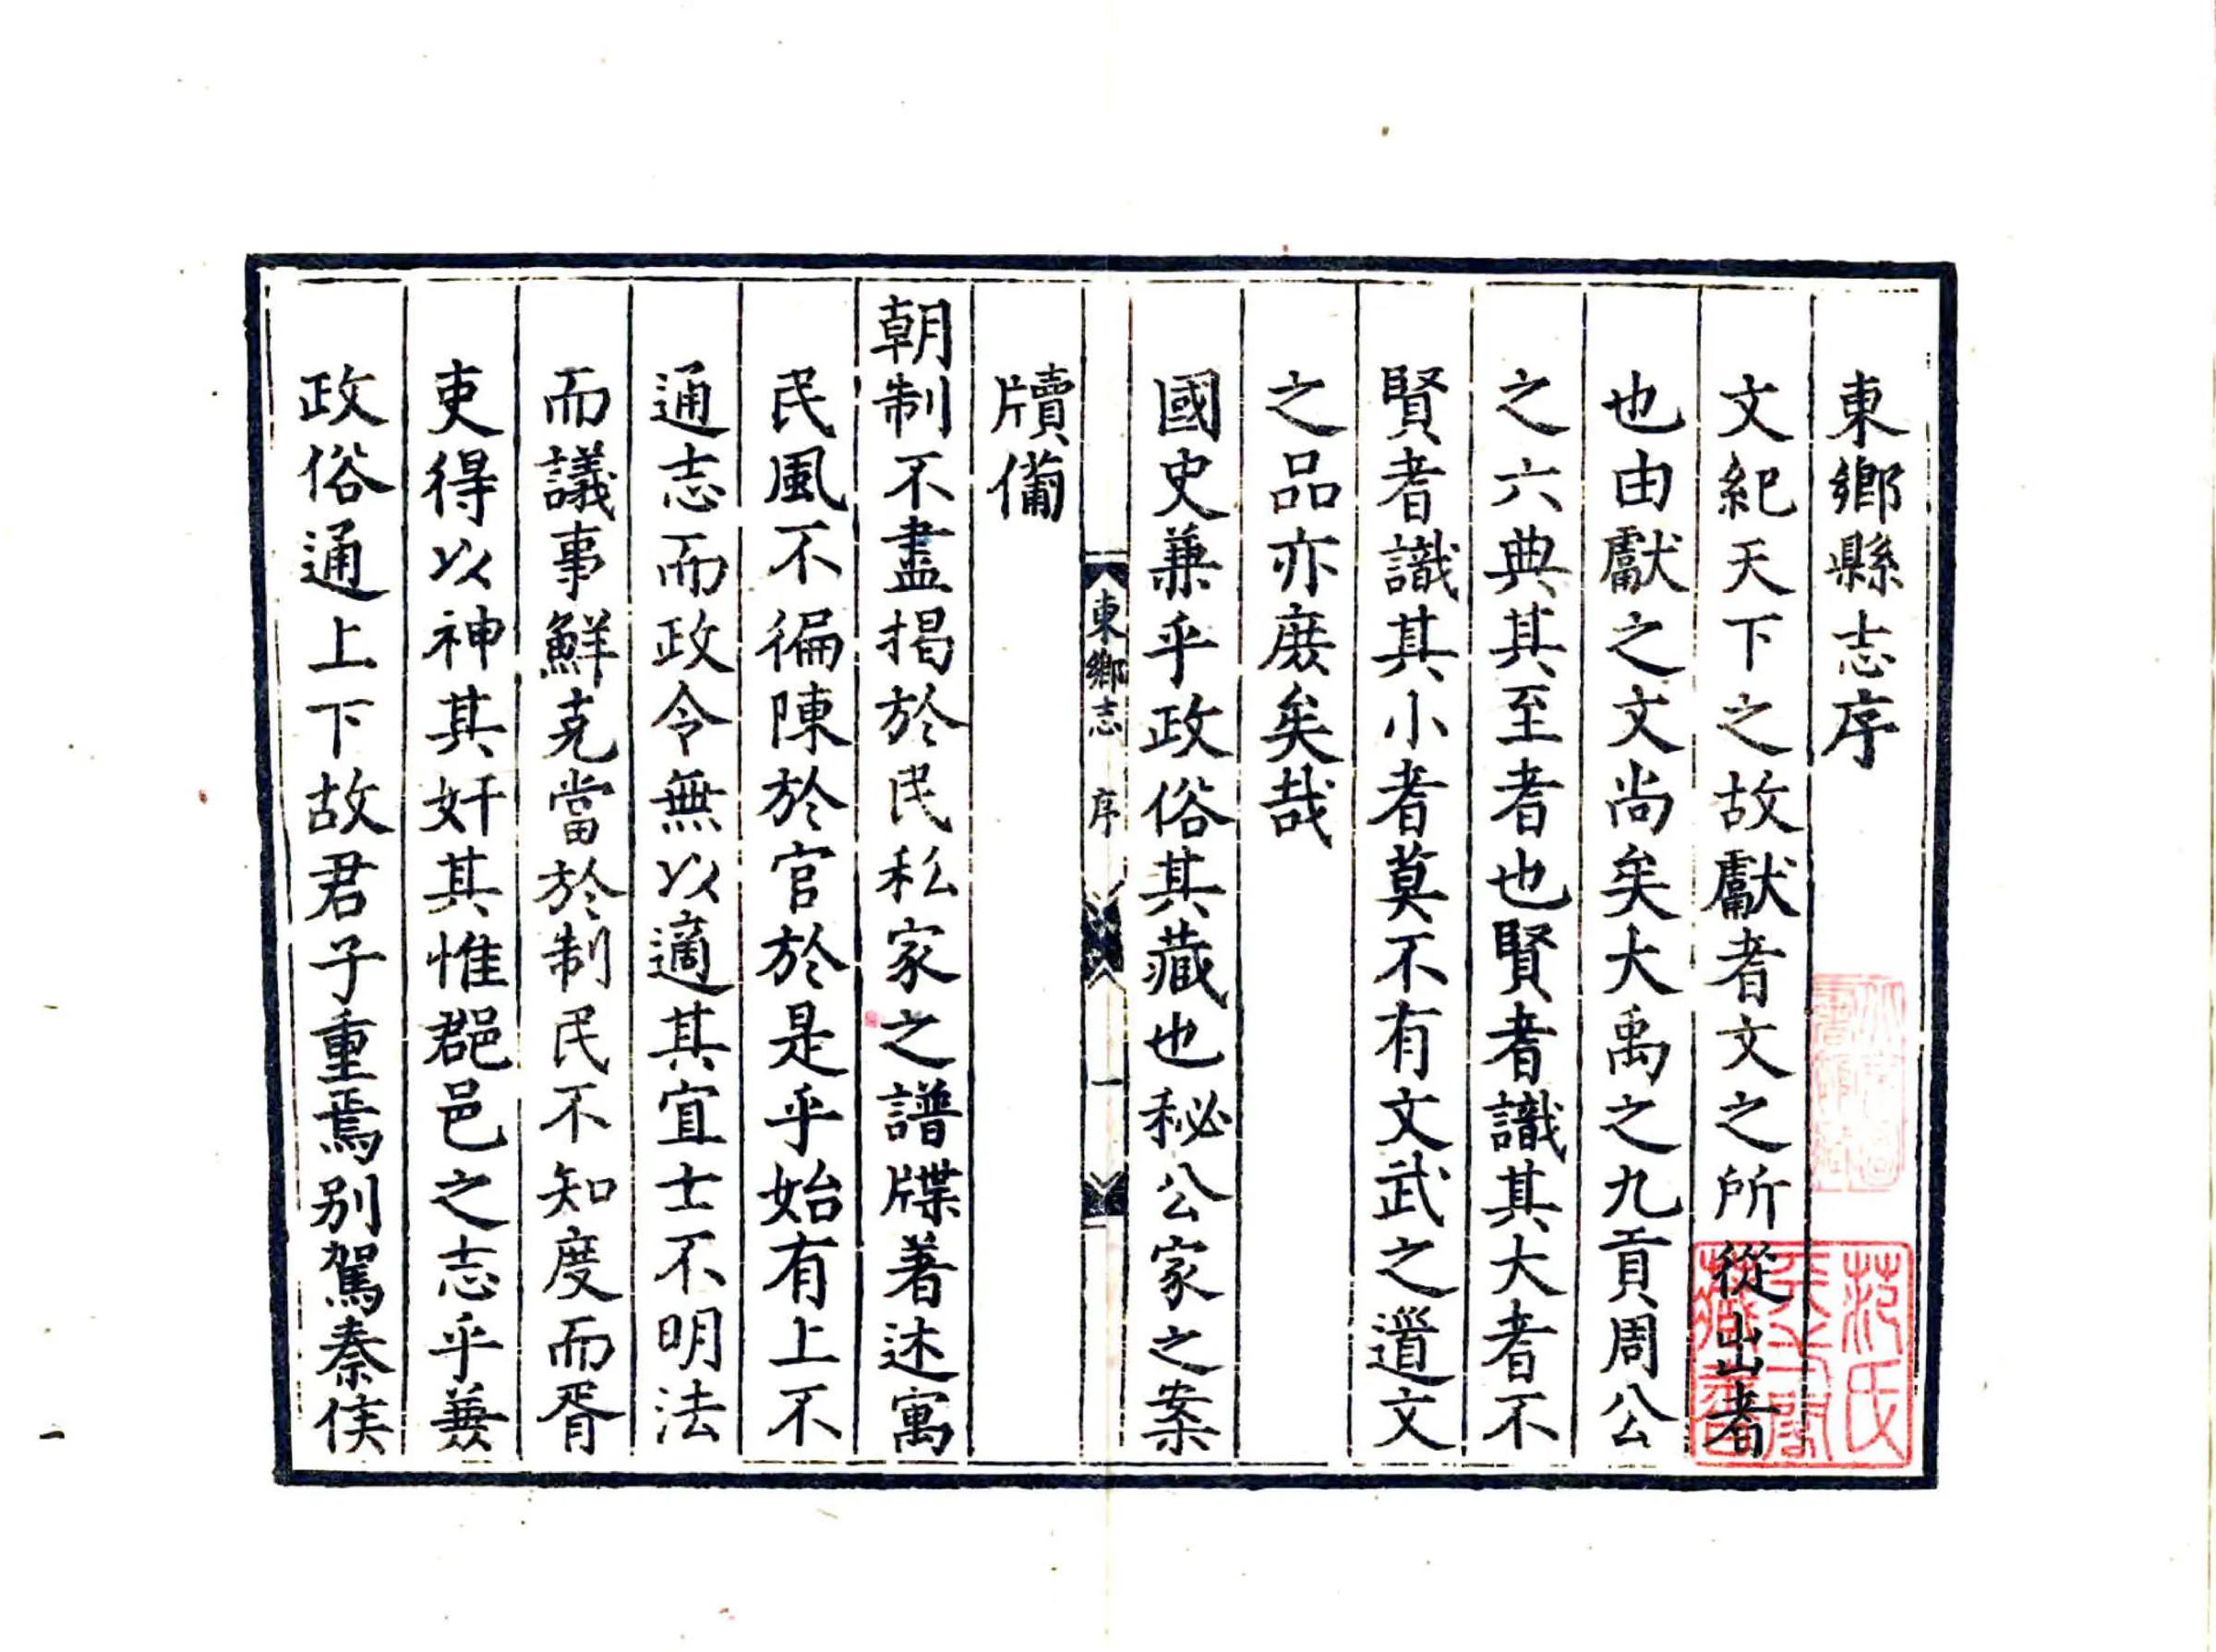 東鄉縣志序
文紀天下之故獻者文之所從出者
也由獻之文尚矣大禹之九貢周公
之六典其至者也賢者識其大者不
賢者識其小者莫不有文武之道文
之品亦庶矣哉
國史兼乎政俗其藏也秘公家之案
牘備
東鄉志 序 一
朝制不盡揭於民私家之譜牒著述寓
民風不徧陳於官於是乎始有上不
通志而政令無以適其宜士不明法
而議事鮮克當於制民不知度而胥
吏得以神其奸其惟郡邑之志乎兼
政俗通上下故君子重焉別駕秦侯
范氏天一閣藏書